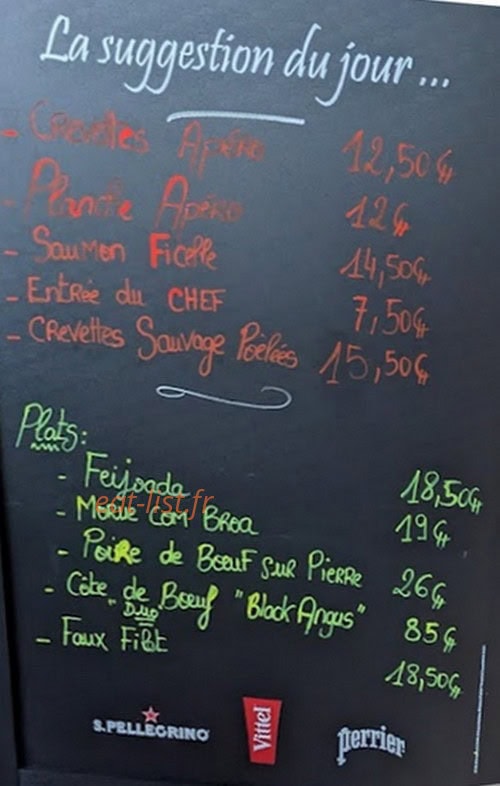 La suggestion du jour...
- Crevettes Apéro 12,50€
- Planche Apéro 12€
- Saumon Ficelle 14,50€
- Entrée du CHEF 7,50€
- Crevettes Sauvage Poêlées 15,50€
Plats:
- Feijoada 18,50€
eat-list.fr
- Morue com Broa 19€
- Poire de Bœuf sur Pierre 26€
- Côte de Bœuf "Black Angus" 85€
"Duo"
- Faux Filet 18,50€
S.PELLEGRINO
Vittel
perrier